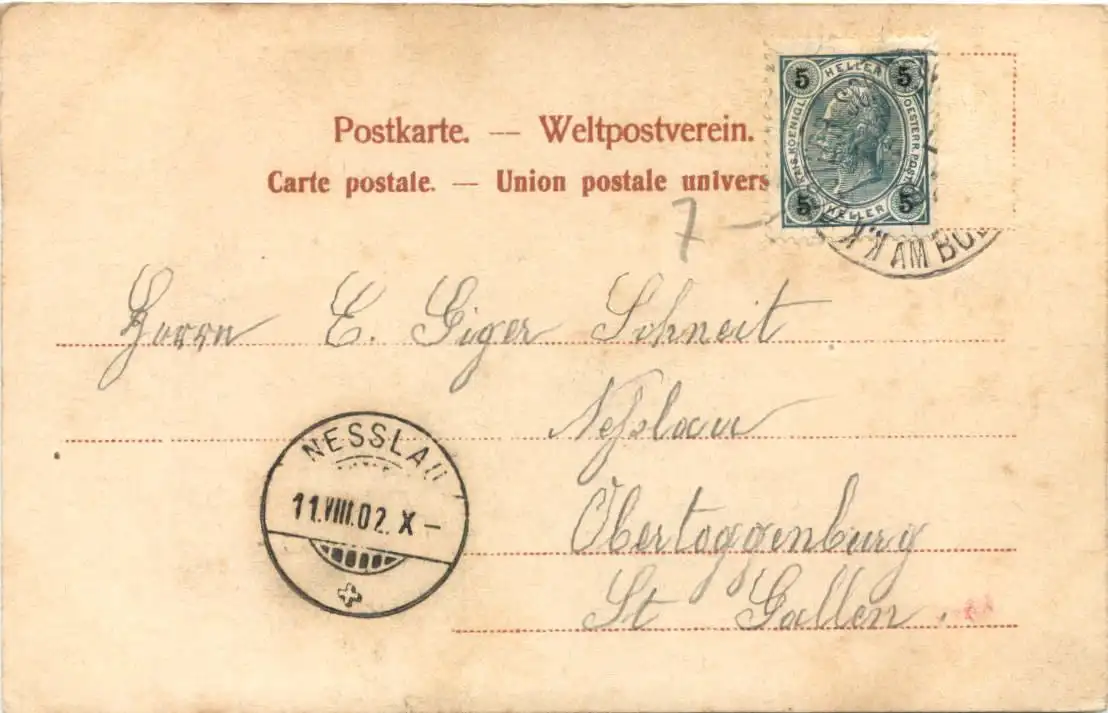 Postkarte. — Weltpostverein.
Carte postale. — Union postale univers
5 HELLER 5
KAIS. KOENIGL. OESTERR. POST
5 HELLER 5
K.K. AM BOD
7 —
Herrn E. Giger Schneit
Neßlau
Obertoggenburg
St Gallen.
NESSLAU
11.VIII.02. X –